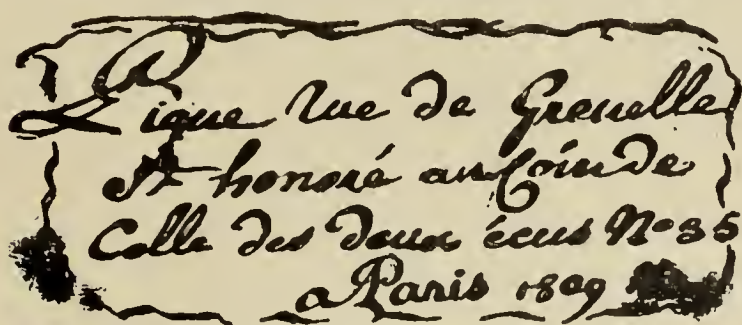 Pique rue de Grenelle
St honoré au Coin de
Celle des deux écus No 35
a Paris 1809